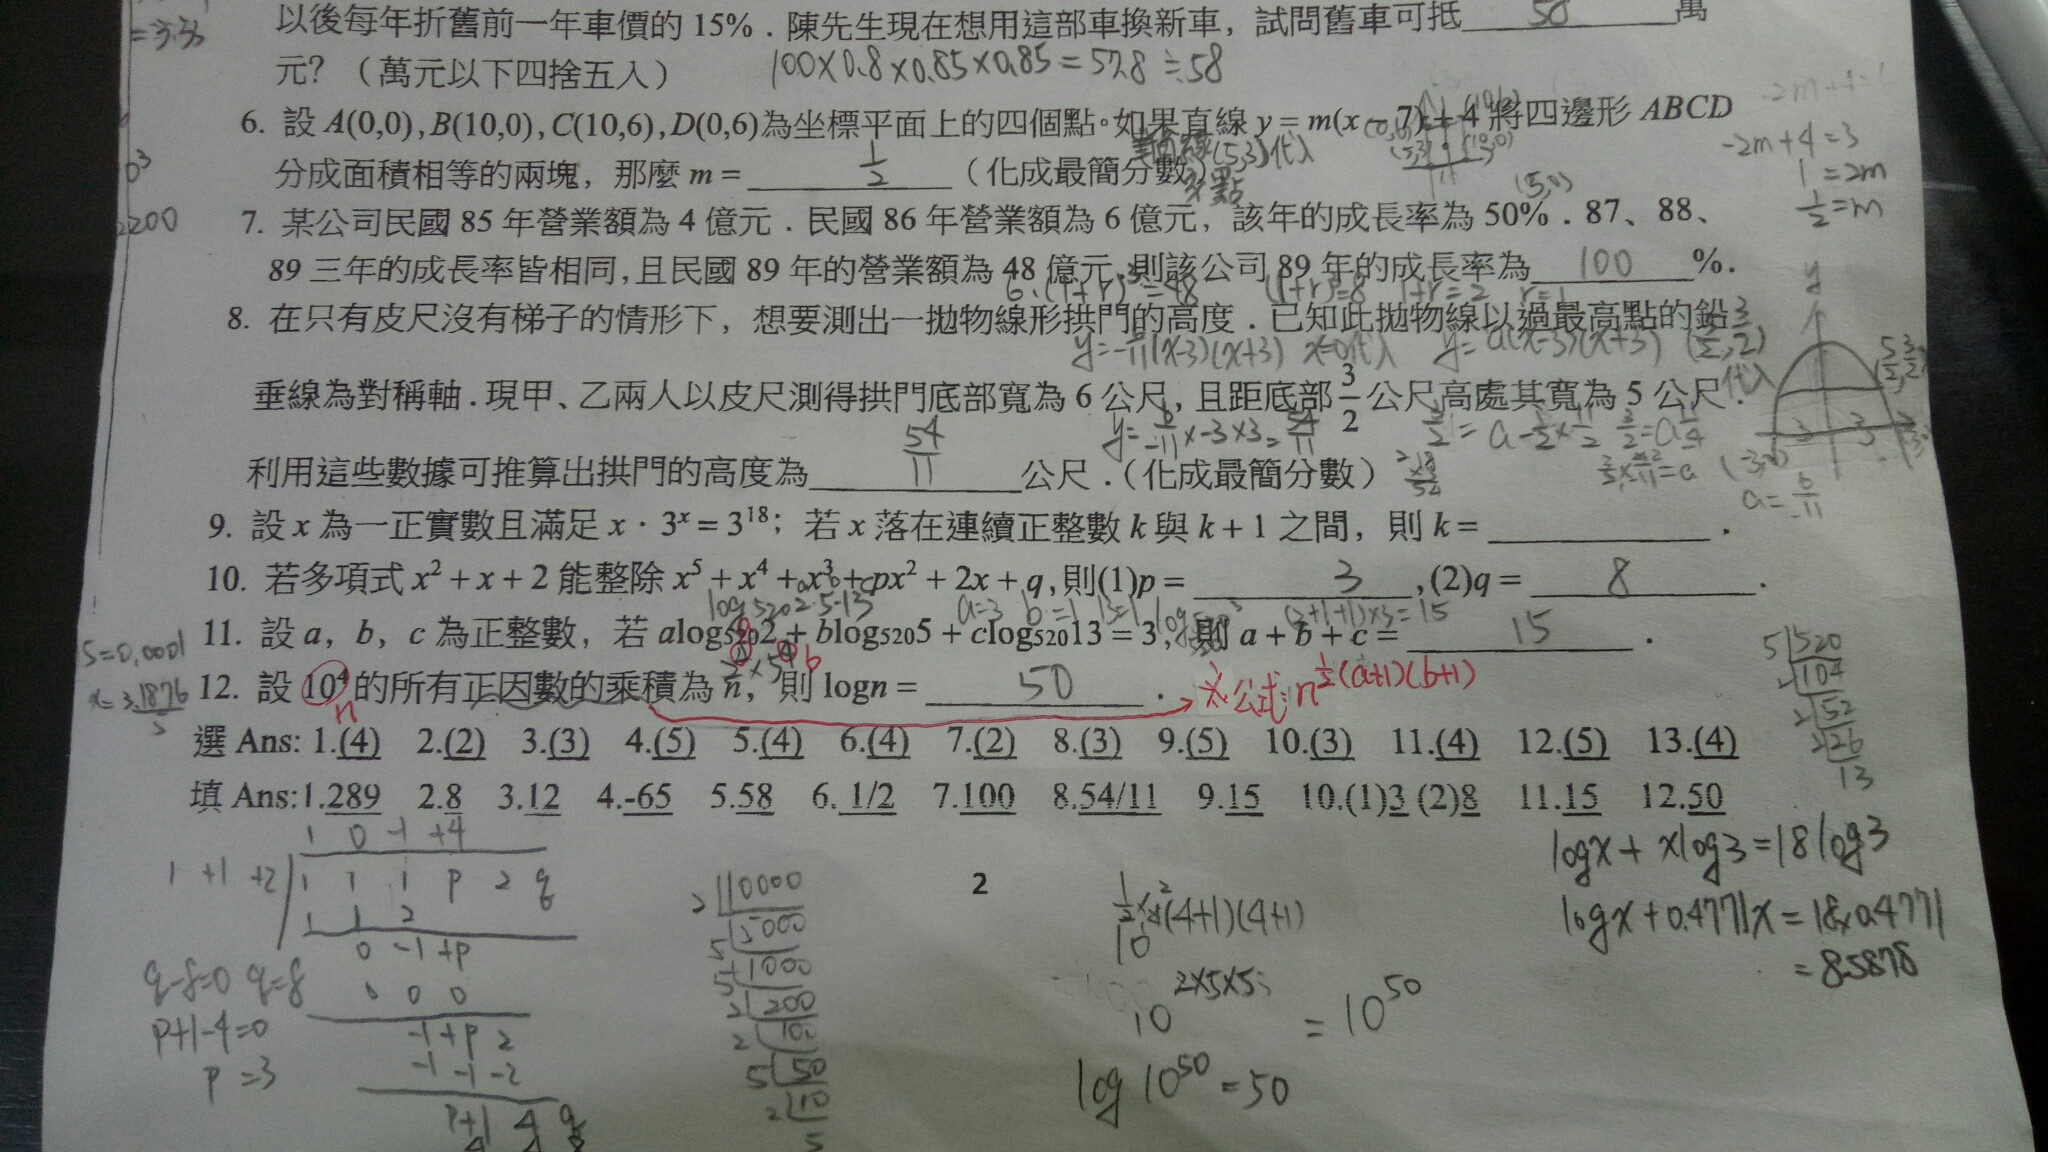 =3.33
以後每年折舊前一年車價的 15%．陳先生現在想用這部車換新車，試問舊車可抵 58 萬
元？（萬元以下四捨五入）
100×0.8×0.85×0.85=57.8≒58
6. 設 A(0,0),B(10,0),C(10,6),D(0,6)為坐標平面上的四個點。如果直線 y = m(x − 7) + 4 將四邊形 ABCD
(5,3)代入
-2m+4=3
1=2m
1/2=m
分成面積相等的兩塊，那麼 m = 1/2 （化成最簡分數）
7. 某公司民國 85 年營業額為 4 億元．民國 86 年營業額為 6 億元，該年的成長率為 50%．87、88、
2200
89 三年的成長率皆相同，且民國 89 年的營業額為 48 億元．則該公司 89 年的成長率為 100 %．
6·(1+r)³=48 (1+r)³=8 1+r=2 r=1
8. 在只有皮尺沒有梯子的情形下，想要測出一拋物線形拱門的高度．已知此拋物線以過最高點的鉛
y=-6/11(x-3)(x+3) x=0代入 y=a(x-3)(x+3)
垂線為對稱軸．現甲、乙兩人以皮尺測得拱門底部寬為 6 公尺，且距底部 3/2 公尺高處其寬為 5 公尺．
y=6/-11×-3×3=54/11
利用這些數據可推算出拱門的高度為 54/11 公尺．（化成最簡分數）
a=6/-11
9. 設 x 為一正實數且滿足 x · 3ˣ = 3¹⁸；若 x 落在連續正整數 k 與 k + 1 之間，則 k = ．
10. 若多項式 x² + x + 2 能整除 x⁵ + x⁴ + x³ + px² + 2x + q，則(1)p = 3 ,(2)q = 8 ．
a=3 b=1 (3+1+1)×3=15
11. 設 a，b，c 為正整數，若 alog₅₂₀2 + blog₅₂₀5 + clog₅₂₀13 = 3，則 a + b + c = 15 ．
12. 設 10⁴ 的所有正因數的乘積為 n，則 logn = 50 ．
n
公式:n^½(a+1)(b+1)
選 Ans: 1.(4) 2.(2) 3.(3) 4.(5) 5.(4) 6.(4) 7.(2) 8.(3) 9.(5) 10.(3) 11.(4) 12.(5) 13.(4)
填 Ans:1.289 2.8 3.12 4.-65 5.58 6. 1/2 7.100 8.54/11 9.15 10.(1)3 (2)8 11.15 12.50
5 520
2 104
2 52
2 26
13
1 0 -1 +4
1 +1 +2 1 1 1 p 2 q
1 1 2
0 -1+p
0 0 0
-1+p 2
-1 -1 -2
p+1 4 q
q-8=0 q=8
p+1-4=0
p=3
2 10000
5 5000
5 1000
2 200
2 100
5 50
2 10
5
2
10^½×4(4+1)(4+1)
10^2×5×5 = 10⁵⁰
log 10⁵⁰=50
logx+xlog3=18log3
logx+0.4771x=18×0.4771
=8.5878